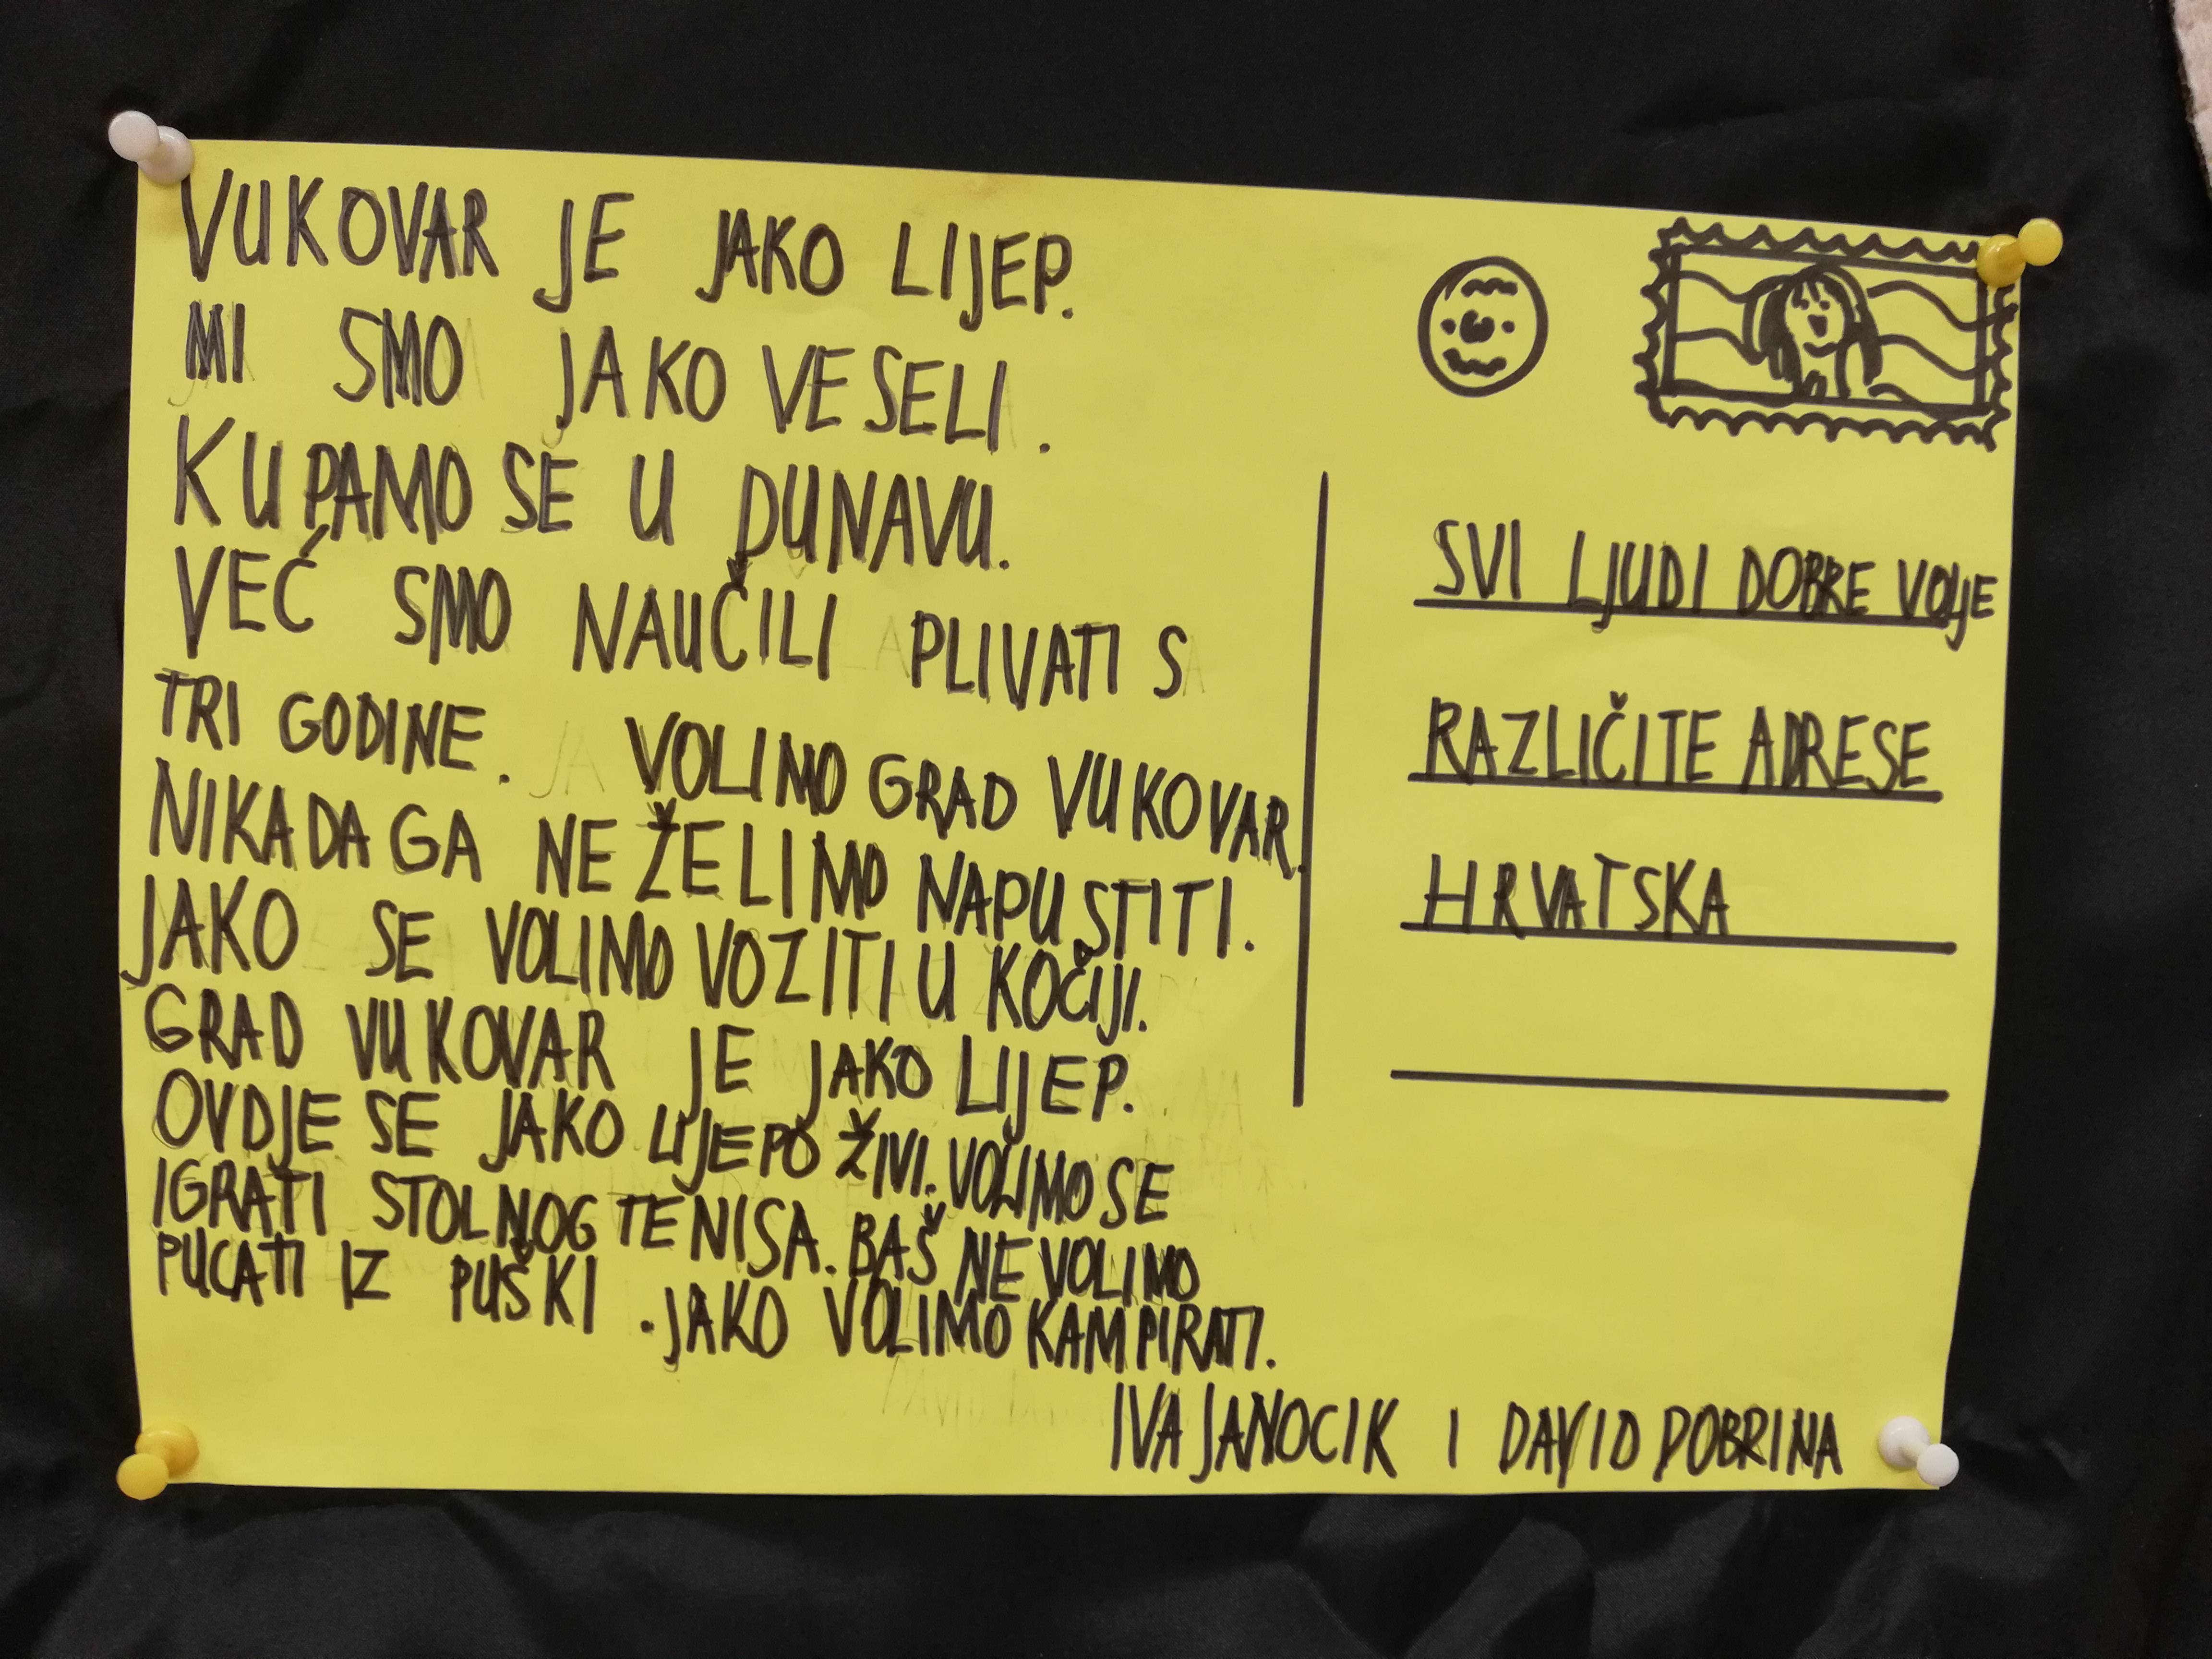 VUKOVAR JE JAKO LIJEP.
MI SMO JAKO VESELI.
KUPAMO SE U DUNAVU.
VEĆ SMO NAUČILI PLIVATI S
TRI GODINE. VOLIMO GRAD VUKOVAR.
NIKADA GA NE ŽELIMO NAPUSTITI.
JAKO SE VOLIMO VOZITI U KOČIJI.
GRAD VUKOVAR JE JAKO LIJEP.
OVDJE SE JAKO LIJEPO ŽIVI. VOLIMO SE
IGRATI STOLNOG TENISA. BAŠ NE VOLIMO
PUCATI IZ PUŠKI. JAKO VOLIMO KAMPIRATI.
IVA JANOCIK I DAVID DOBRINA
SVI LJUDI DOBRE VOLJE
RAZLIČITE ADRESE
HRVATSKA